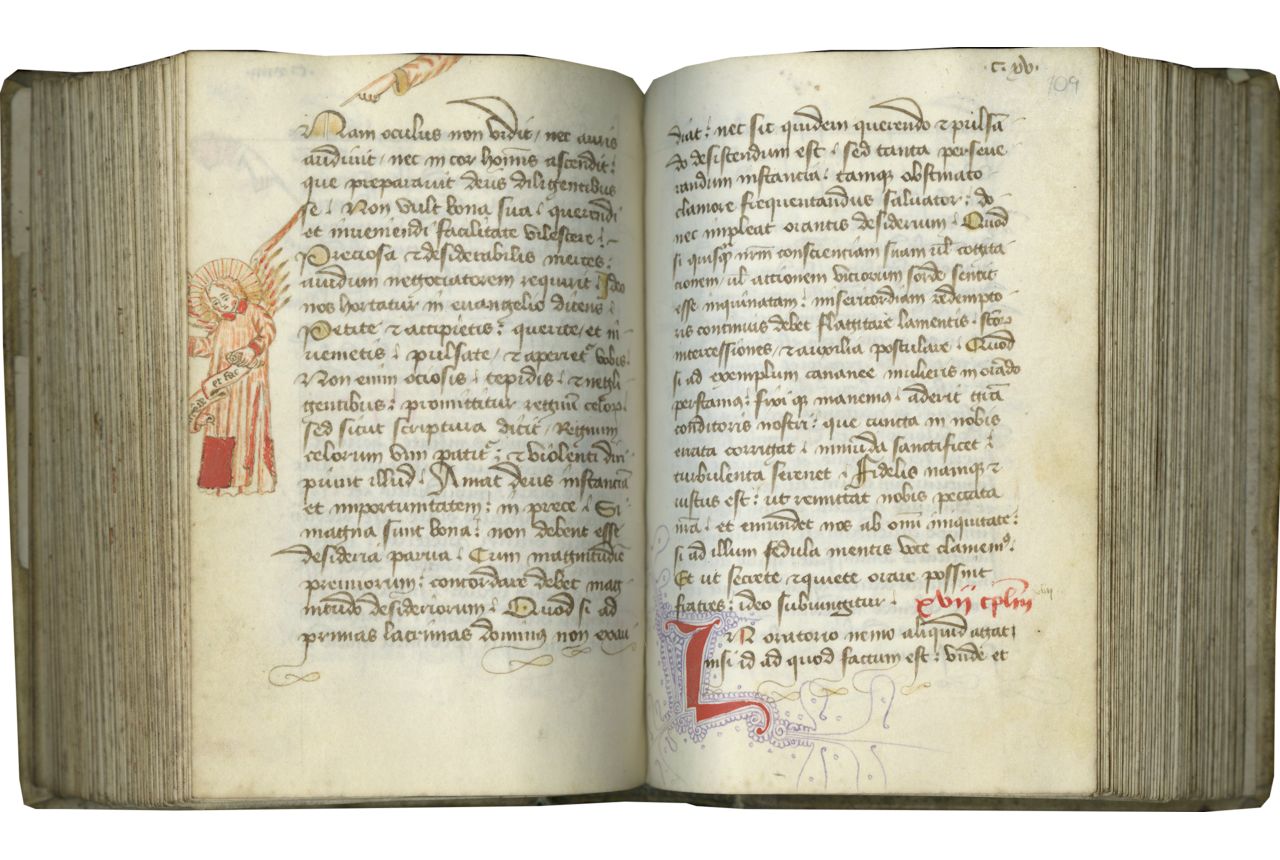 Nam oculus non vidit / nec auris
audivit / nec in cor homĩs ascendit :
que preparavit deus diligentibus
se . Non vult bona sua : querendi
et inveniendi facilitate vilescere :
Preciosa et desiderabilis merces :
avidum negociatorem requirit . Ideo
nos hortatur in evangelio dicens :
Petite et accipietis : querite / et in
venietis : pulsate / et aperiet² vobis .
Non enim ociosis . tepidis . et negli
gentibus : promittitur regnũ celoꝝ .
sed sicut scriptura dicit / Regnum
celorum vim patit² : et violenti diri
piunt illud . Amat deus instanciã
et importunitatem : in prece . Si
magna sunt bona : non debent esse
desideria parva . Cum magnitudie
premiorum : concordare debet mag
nitudo desideriorum . Quod si ad
primas lacrimas dominꝰ non exau
et fac
·c· xv·
109
diat : nec sic quidem querendo et pulsã
do desistendum est . sed tanta perseve
randum instancia : tamqꝫ obstinato
clamore frequentandus salvator : do
nec impleat orantis desiderium . Quod
si quisqꝫ nrm̃ conscienciam suam ul̃ cogita
cionem / ul̃ actionem viciorum sorde sentit
esse inquinatam : misericordiam redempto
ris continuis debet flagitare lamentis . scõꝝ
intercessiones / et auxilia postulare . Quod
si ad exemplum cananee mulieris in orãdo
perstamꝰ : fixi qꝫ manemꝰ : aderit grã
conditoris nostri : que cuncta in nobis
errata corrigat . inmũda sanctificet .
turbulenta serenet . Fidelis namqꝫ et
iustus est : ut remittat nobis peccata
nrã . et emundet nos ab omĩ iniquitate :
si ad illum sedula mentis voce clamemꝰ .
Et ut secrete et quiete orare possint
fratres : ideo subiungitur . xvii cplm̃
IN oratorio nemo aliquid agat :
nisi id ad quod factum est : unde et